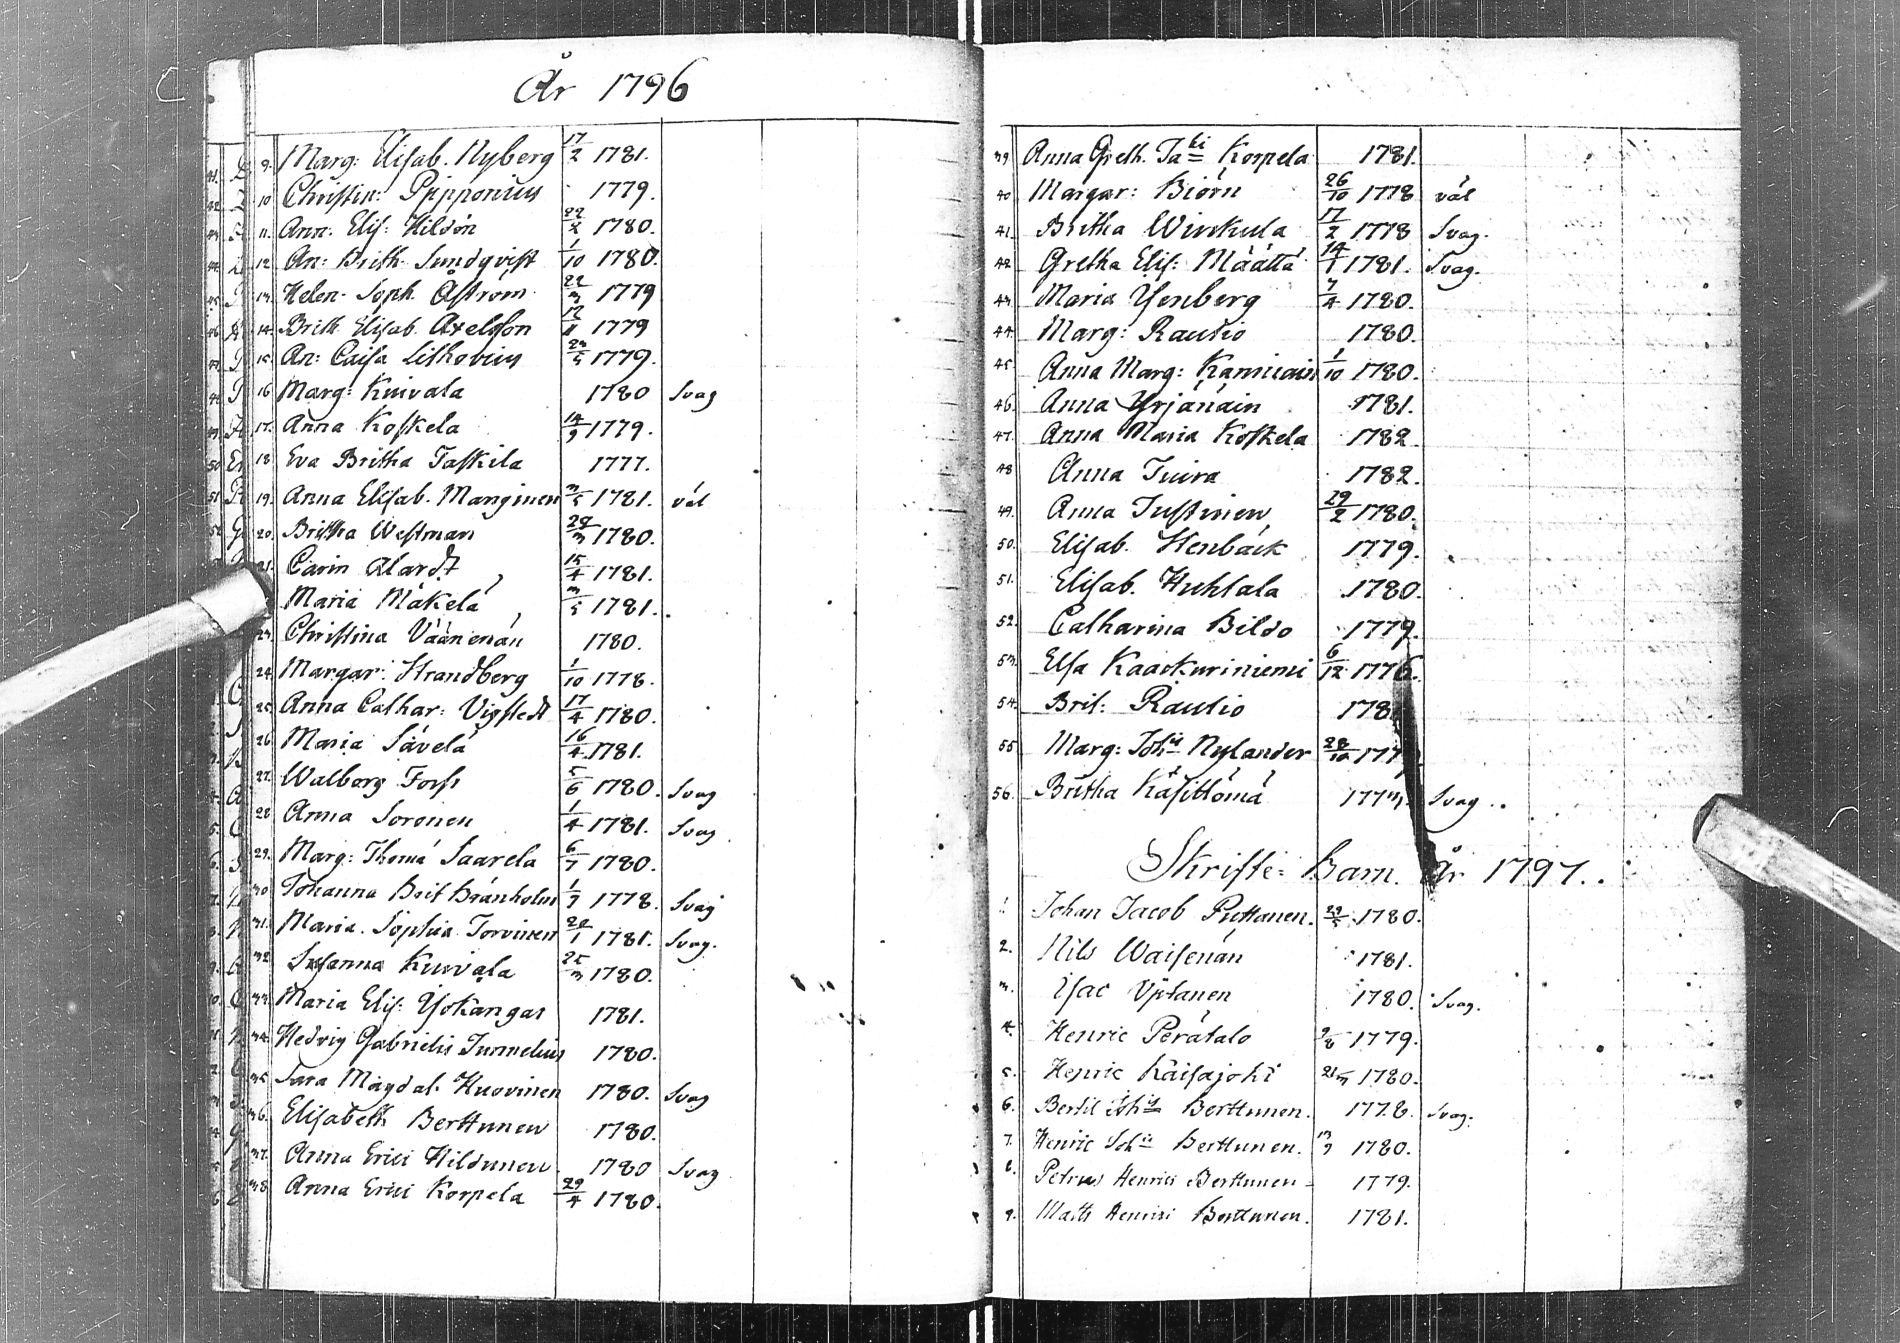 År 1796
9. Marg: Elisab. Nyberg 17/2 1781.
10 Christin: Pipponius 1779.
11. Ann. Elis: Hildén 22/2 1780.
12 An: Brith. Sundqvist 1/10 1780.
13. Helen. Soph. Åström 22/3 1779
14. Brith. Elisab. Axelsson 12/11 1779
15. An: Caisa Lithovius 23/5 1779.
16 Marg: Kuivala 1780 Svag
17. Anna Koskela 14/9 1779.
18 Eva Britha Taskila 1777.
19. Anna Elisab. Manginen 3/5 1781. väl
20. Britha Westman 28/3 1780.
21. Carin Alardt 15/4 1781.
Maria Mäkelä 3/5 1781.
23. Christina Väänenän 1780.
24. Margar: Strandberg 1/10 1778.
25. Anna Cathar: Vigstedt 17/4 1780.
26. Maria Sävelä 16/4 1781.
27. Walborg Forss 5/6 1780. Svag
28 Anna Soronen 1/4 1781. Svag
29. Marg: Thomæ Saarela 6/7 1780.
30 Johanna Brit Brånholm 1/7 1778. Svag
31. Maria Sophia Torvinen 20/1 1781. Svag.
32 Susanna Kuivala 25/3 1780.
33. Maria Elis: Ysokangas 1781.
34. Hedvig Gabrielis Turmelius 1780.
35. Sara Magdal. Huovinen 1780. Svag
36. Elisabeth Berttunen 1780.
37. Anna Erici Hildunen 1780 Svag
38. Anna Erici Korpela 29/4 1780.
39. Anna Greth. Jaki Korpela 1781.
40 Margar: Biörn 26/10 1778 väl
41. Britha Wirkula 17/2 1778 Svag.
42 Gretha Elis: Määttä 14/1 1781. Svag.
43. Maria Ysenberg 7/4 1780.
44. Marg: Rautio 1780.
45. Anna Marg: Kanniain 1/10 1780.
46. Anna Yrjänäin 1781.
47. Anna Maria Koskela 1782
48 Anna Tuira 1782.
49. Anna Justinen 29/2 1780.
50. Elisab. Stenbäck 1779.
51. Elisab. Huhtala 1780.
52. Catharina Bildo 1779.
53. Elsa Kaackuriniemi 6/12 1776.
54. Brit: Rautio 178
55. Marg: Johis Nylander 28/10 177
56. Britha Käsittömä 1773. Svag.
Skrifte-barn. År 1797.
1. Johan Jacob Puttanen. 29/5 1780.
2. Nils Waisenän 1781.
3. Isac Ypŧanen 1780. Svag.
4. Henric Perätalo 2/8 1779.
5. Henric Kaisajoki 21/3 1780.
6. Bertil Johis Berttunen. 1778. Svag.
7. Henric Johis Berttunen. 13/9 1780.
8. Petrus Henrici Berttunen 1779.
9. Matts Henrici Berttunen. 1781.